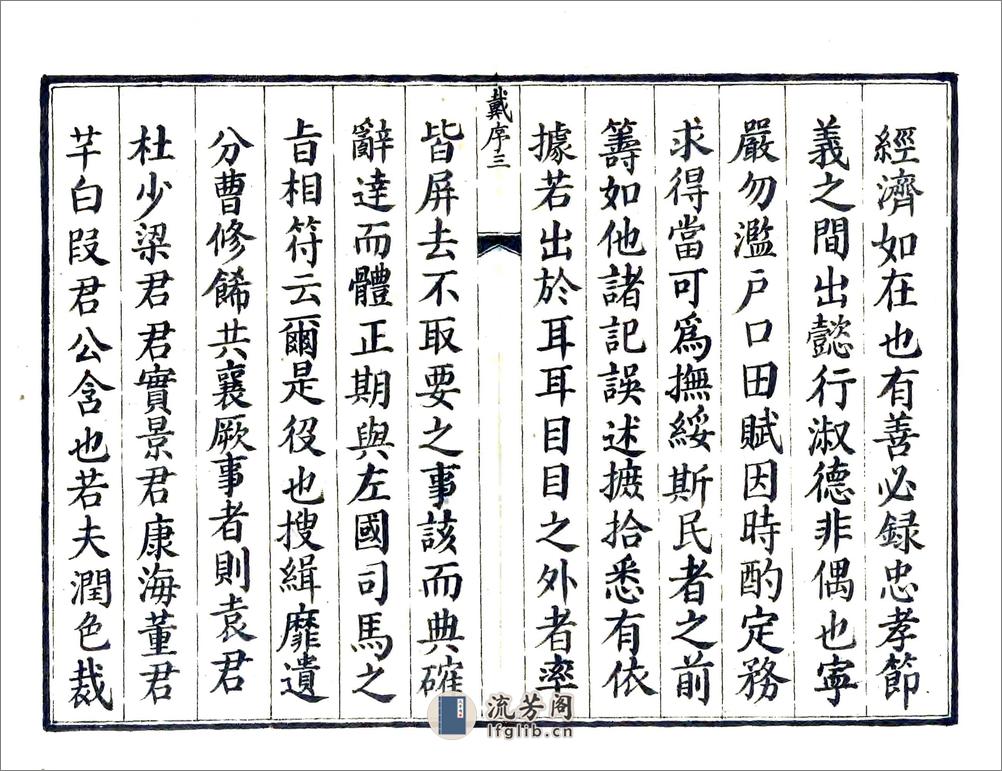 經濟如在也有善必録忠孝節
義之間出懿行淑德非偶也寧
嚴勿濫戶口田賦因時酌定務
求得當可爲撫綏斯民者之前
籌如他諸記誤述摭拾悉有依
據若出於耳耳目目之外者率
戴序三
皆屏去不取要之事該而典確
辭達而體正期與左國司馬之
旨相符云爾是役也搜緝靡遺
分曹修餙共襄厥事者則袁君
杜少梁君君實景君康海董君
芊白叚君公含也若夫潤色裁
流芳阁
lfglib.cn